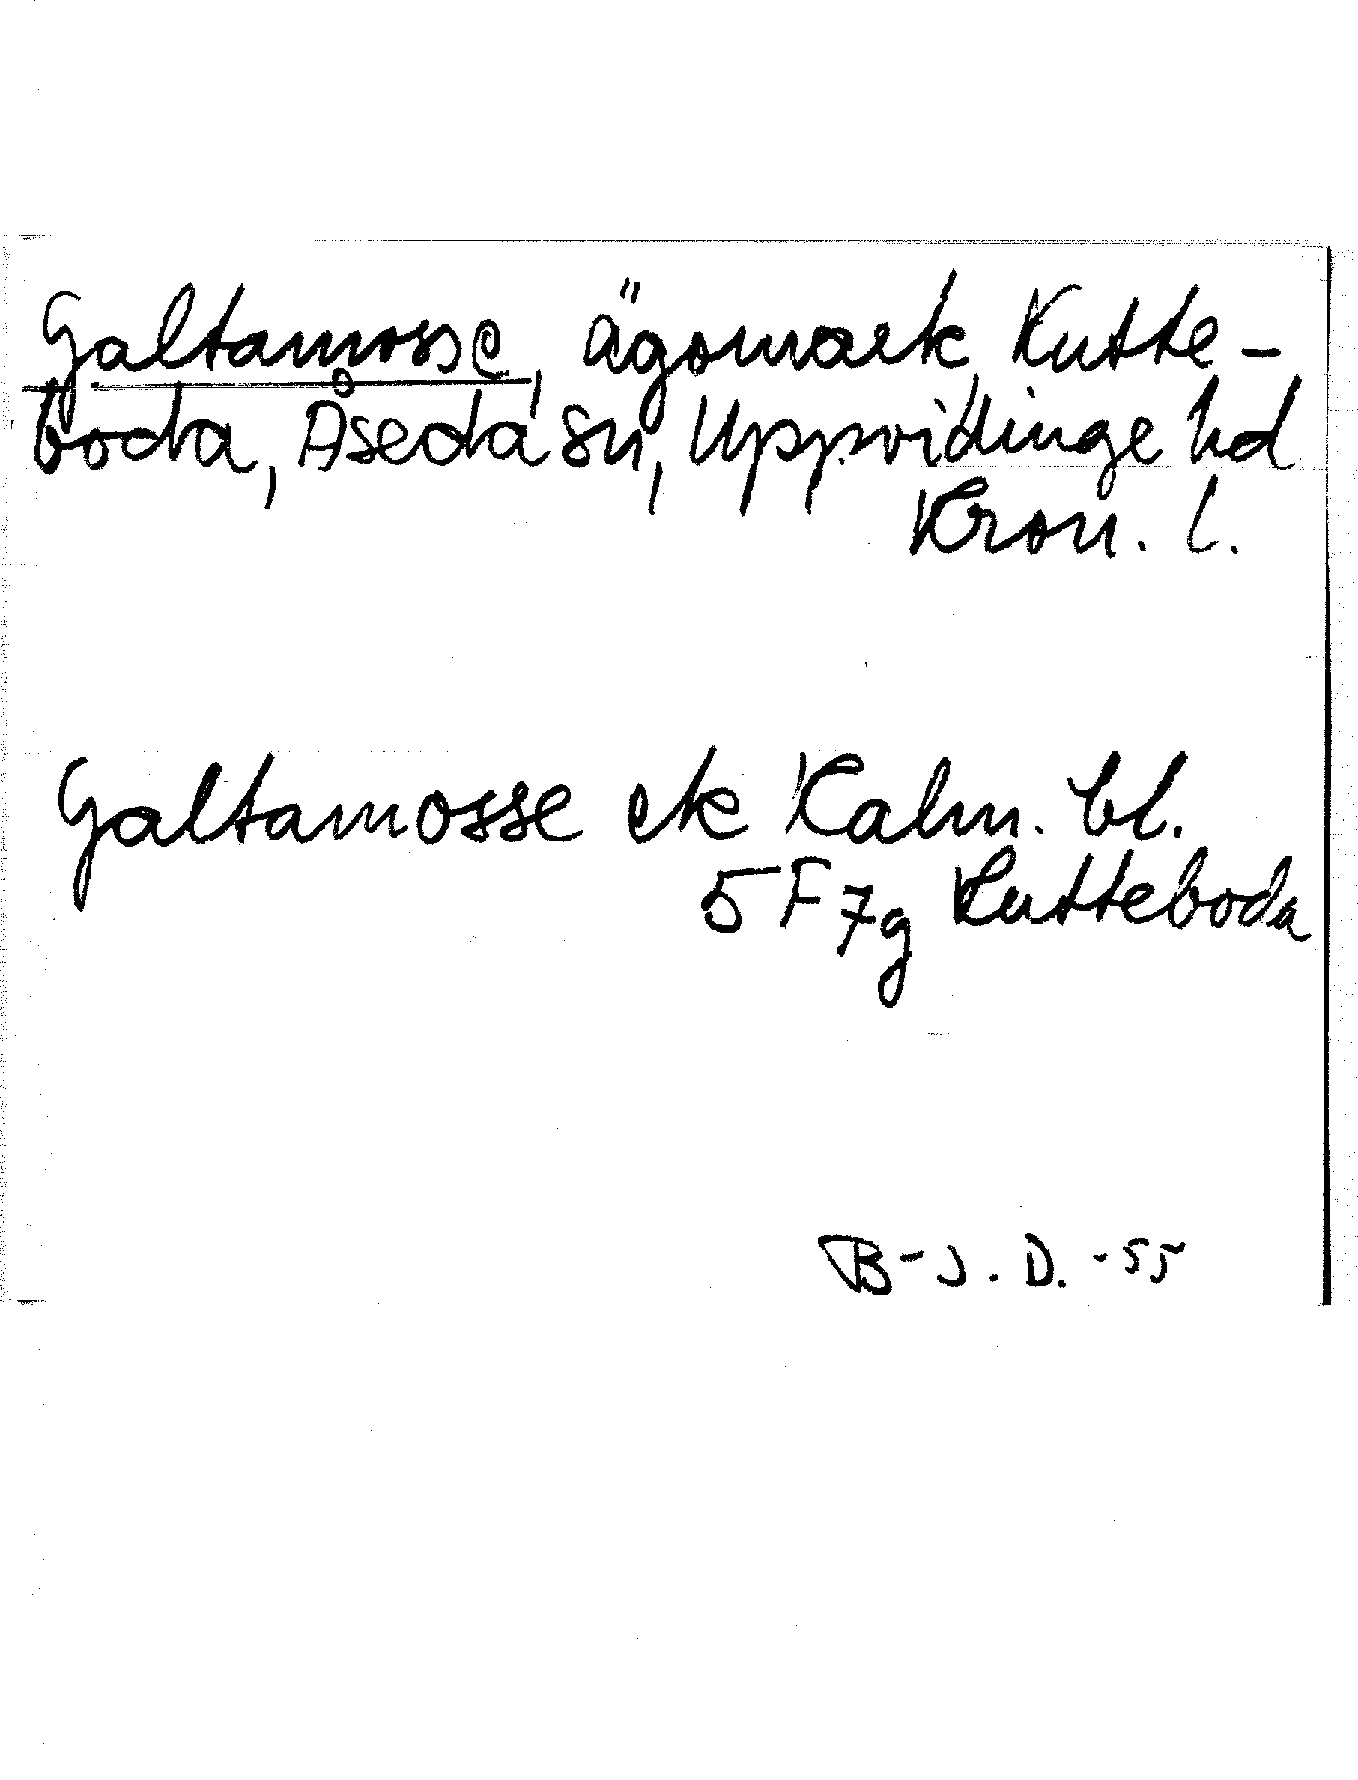 Galtamosse, ägomark Kutte-
boda, Åseda sn, Uppvidinge hd
Kron. l.
Galtamosse ek Kalm. bl.
5F7g Kutteboda
B-J.D.-55